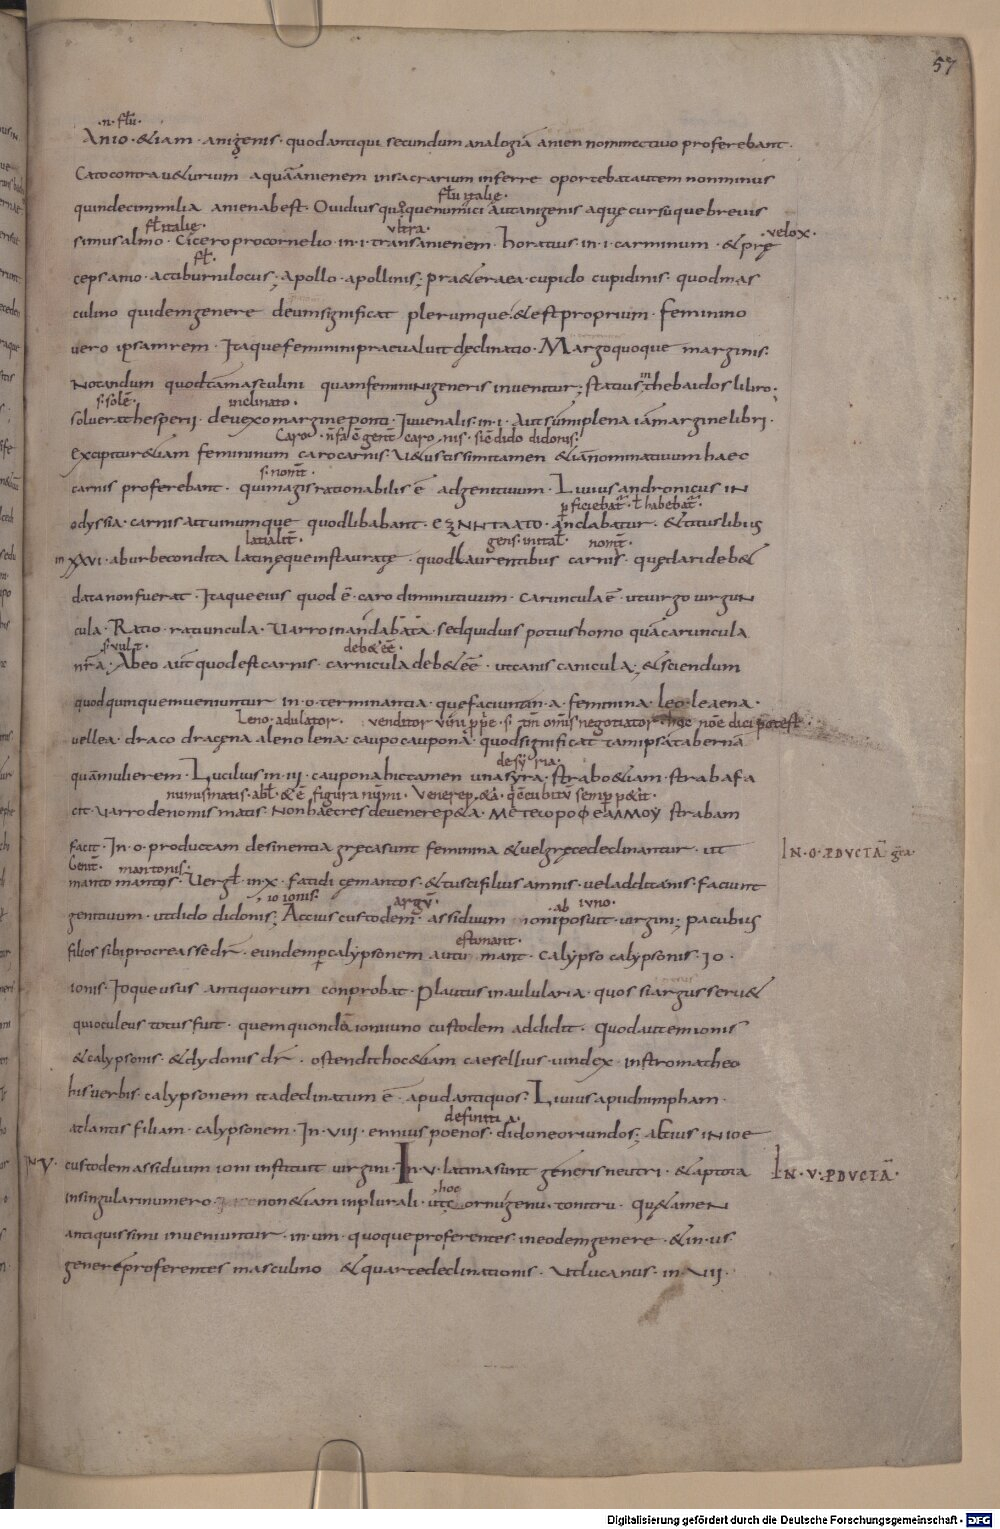 57
·n· flu·
Anio · & iam · anigenis · quod antiqui secundum analogiā anien nominatiuo proferebant ·
Cato contra u&urium aquā anienem in sacrarium inferre oportebat autem non minus
flu italię ·
quindecim milia anien abest · Ouidius quoque numici aut anigenis aquę cursuque breuis
fl italię · ultra · velox ·
simus almo · Cicero pro cornelio · in · i · trans anienem · horatius · in · i · carminum · & prę
fl ·
ceps anio · ac tiburni locus ; Apollo · apollinis ; pra&erea · cupido cupidinis · quod mas
culino quidem genere deum significat plerumque · & est proprium · feminino
uero ipsam rem · Itaque feminini praeualuit declinatio · Margo quoque marginis ·
Notandum quod tam masculini quam feminini generis inuenitur ; statius in thebaidos libro ·
s· solē · inclinato ·
soluerat hesperii · deuexo margine ponti · Iuuenalis · in · i · Aut summi plena iā margine libri ·
Caro · caro nis · dido didonis ·
Excipitur & iam femininum caro carnis · U&ustissimi tamen & iā nominatiuum haec
s· nomt ·
carnis proferebant · qui magis rationabilis ē ad genitiuum · Liuius andronicus in
pficiebat · ł habebat ·
odyssia · carnis uinumque quod libabant · anclabatur · & titus libius
latialit · gens · nomt ·
in XXVI · ab urbe condita latinęque instauratę quod laurentibus carnis · quę dari deb&
data non fuerat · Itaque eius quod ē · caro diminutiuum · caruncula ē · ut uirgo uirgun
cula · Ratio · ratiuncula · Uarro in andabata · sed quid uis potius homo quā caruncula
s· uult · deb& eē ·
nrā · Ab eo aut quod est carnis · carnicula deb& eē · ut canis canicula ; & sciendum
quod quęmque inueniuntur in · o · terminantia · quę faciunt in · a · feminina · leo leaena ·
Leno · adulator · venditor negotiator potest ·
uel lea · draco dracena a leno lena · caupo caupona · quod significat tam ipsā tabernā
de syria ·
quā mulierem · Lucilius in · III · caupona hic tamen una syra · strabo & iam · straba fa
numismatis · abl · & ē figura nūmi ·
cit · Uarro de nomismatis · Non haec res de uenere p&a · strabam
facit · In · o · productam desinentia gręca sunt feminina & uel gręce declinantur · ut
In · o · pductā gra
Genit · mantonis ·
manto mantos · Uergl · in · x · fatidicę mantos · & tusci filius amnis · uel addita nis · faciunt
io ionis · argū · ab iuno ·
genitiuum · ut dido didonis ; Accius custodem assiduum ioni posuit uirgini ; pacubius
estimant ·
filios sibi procreasse dr · eundem p calypsonem autumant · Calypso calypsonis · Io ·
ionis · Ioque usus antiquorum conprobat · Plautus in aulularia · quos si argus seru&
qui oculeus totus fuit · quem quondā ioni iuno custodem addidit · Quod autem ionis
& calypsonis · & dydonis dr · ostendit hoc & iam caesellius · uindex · in stromatheo
his uerbis · calypsonem ita declinatum ē · apud antiquos · Liuius apud nimpham ·
definiti
atlantis filiam · calypsonem · In · VIII · ennius poenos · didone oriundos ; Attius in ioe
custodem assiduum ioni instituit uirgini · In · V · latina sunt generis neutri · & aptota
In · V · pductā ·
hoc
in singulari numero · non & iam in plurali · ut cornu · genu · tonitru · Qu& amen
antiquissimi inueniuntur · in · um · quoque proferentes · in eodem genere · & in · us ·
genere proferentes masculino & quarte declinationis · Ut lucanus · in · VIII ·
Digitalisierung gefördert durch die Deutsche Forschungsgemeinschaft - DFG